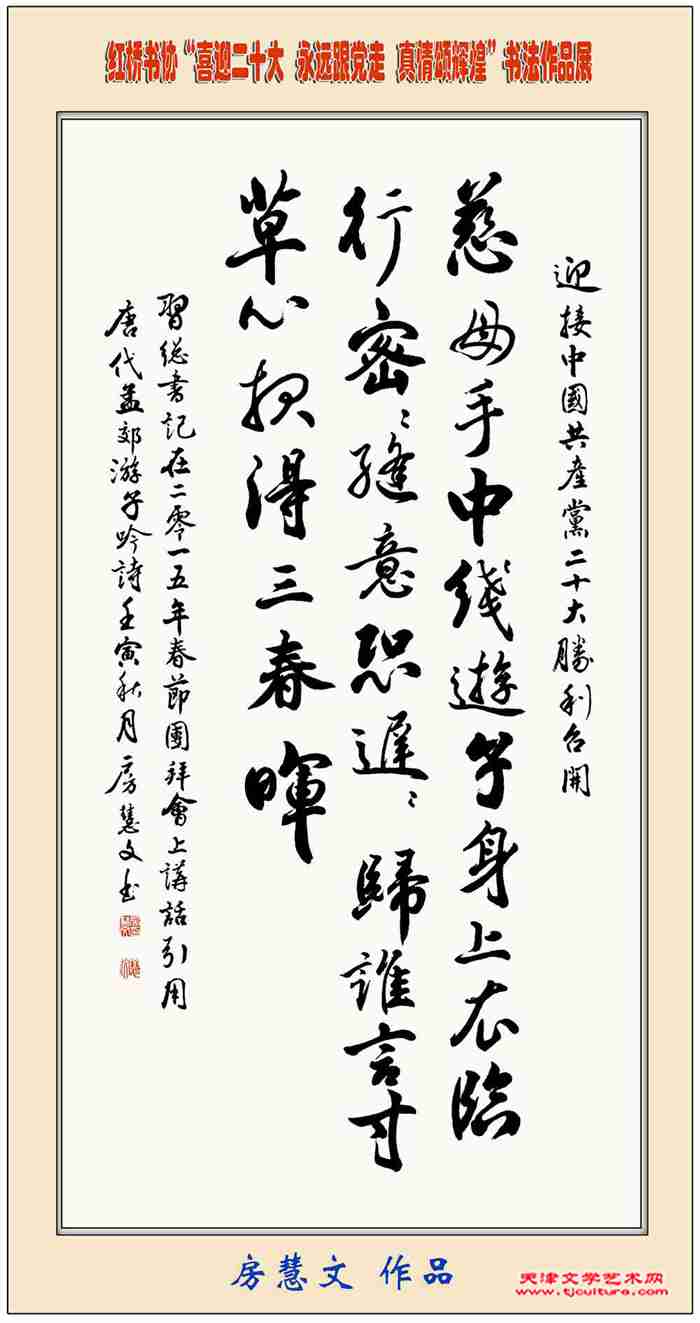 红桥书协“喜迎二十大 永远跟党走 真情颂辉煌”书法作品展
迎接中國共產黨二十大勝利召開
慈母手中线遊子身上衣臨
行密〻縫意恐遲〻歸誰言寸
草心报得三春暉
習総書記在二零一五年春節團拜會上講話引用
唐代孟郊游子吟詩壬寅秋月房慧文书
房慧文 作品
天津文学艺术网
www.tjculture.com